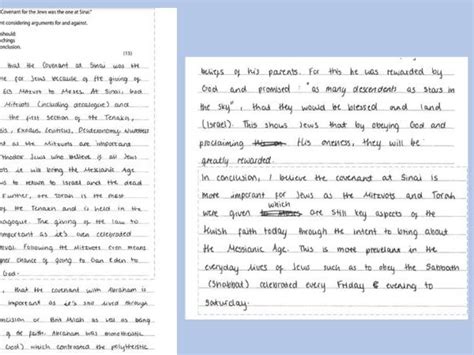 Covenant for the Jews was the one at Sinai."
nt considering arguments for and against.
should:
chings
onclusion.
(15)
that the Covenant at Sinai was the
for Jews because of the giving of
613 Mitzvot to Moses. At Sinai, God
Mitzvots (including decalogue) and
the first section of the Tenakh,
Exodus, Leviticus, Deuteronomy, Numbers
at as the Mitzvots are important
thodox Jews who believe if all Jews
it will bring the Messianic Age
us to return to Israel and the dead
Further, the Torah is the most
of the Tenakh and is held in the
nagogue. The giving of the law to
important as it's even celebrated
Following the Mitzvots even means
per chance of going to Gan Eden to
God.
that the covenant with Abraham is
important as it's still lived through
cision or Brit Milah as well as being
of the faith. Abraham was monotheistic
God), which contrasted the polytheistic
beliefs of his parents. For this he was rewarded by
God and promised "as many descendents as stars in
the sky", that they would be blessed and land
(Israel). This shows Jews that by obeying God and
proclaiming His oneness, they will be
greatly rewarded.
In conclusion, I believe the covenant at Sinai is
more important for Jews as the Mitzvots and Torah
which
were given are still key aspects of the
Jewish faith today through the intent to bring about
the Messianic Age. This is more prevelant in the
everyday lives of Jews such as to obey the Sabbath
(Shabbat) celebrated every Friday evening to
Saturday.